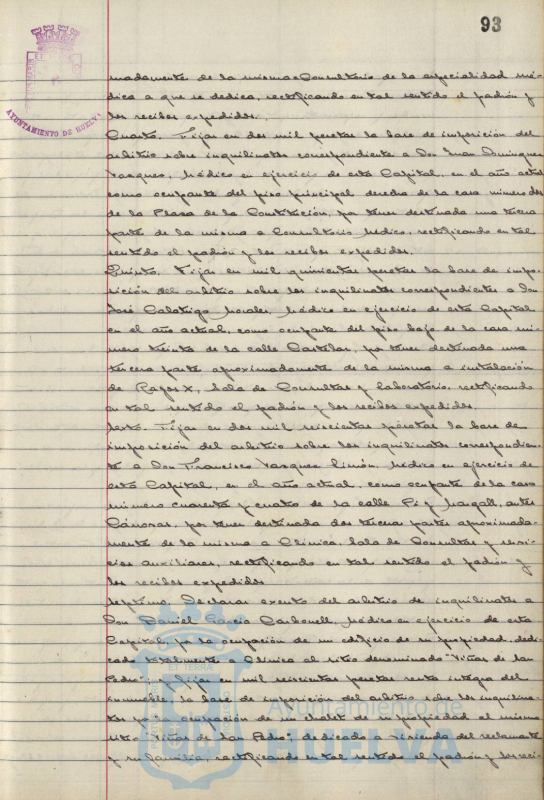 93
AYUNTAMIENTO DE HUELVA
madamente de la misma a Consultorio de la especialidad mé-
dica a que se dedica, rectificando en tal sentido el padrón y
los recibos expedidos.
Cuarto. Fijar en dos mil pesetas la base de imposición del
arbitrio sobre inquilinatos correspondiente a Don Juan Domínguez
Vazquez, Médico en ejercicio de esta Capital, en el año actual
como ocupante del piso principal derecha de la casa número dos
de la Plaza de la Constitución, por tener destinada una tercera
parte de la misma a Consultorio Médico, rectificando en tal
sentido el padrón y los recibos expedidos.
Quinto. Fijar en mil quinientas pesetas la base de impo-
sición del arbitrio sobre los inquilinatos correspondientes a Don
José Calatrigo Morales, Médico en ejercicio de esta Capital
en el año actual, como ocupante del piso bajo de la casa nú-
mero treinta de la calle Castelar, por tener destinada una
tercera parte aproximadamente de la misma a instalación
de Rayos X, Sala de Consultas y Laboratorio, rectificando
en tal sentido el padrón y los recibos expedidos.
Sexto. Fijar en dos mil seiscientas pesetas la base de
imposición del arbitrio sobre los inquilinatos correspondien-
te a Don Francisco Vazquez Limón, Médico en ejercicio de
esta Capital, en el año actual, como ocupante de la casa
número cuarenta y cuatro de la calle Pi y Margall, antes
Cánovas, por tener destinada dos terceras partes aproximada-
mente de la misma a Clínica, Sala de Consultas y servi-
cios auxiliares, rectificando en tal sentido el padrón y
los recibos expedidos
Septimo. Declarar exento del arbitrio de inquilinatos a
Don Daniel García Carbonell, Médico en ejercicio de esta
Capital, por la ocupación de un edificio de su propiedad, dedi-
cado totalmente a Clínica al sitio denominado "Viñas de San
Pedro", y fijar mil seiscientas pesetas renta integra del
inmueble, la base de imposición del arbitrio sobre los inquilina-
tos por la ocupación de un chalet de su propiedad al mismo
sitio "Viñas de San Pedro", dedicado a vivienda del reclamante
y su familia, rectificando en tal sentido el padrón y los reci-
Ayuntamiento de
HUELVA